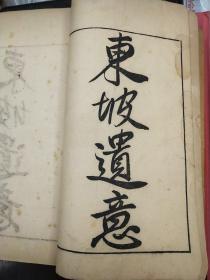 東坡遺意